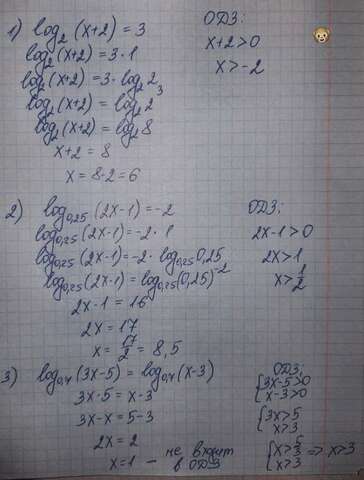 1) log₂(x+2) = 3
log₂(x+2) = 3·1
log₂(x+2) = 3·log₂2
log₂(x+2) = log₂2³
log₂(x+2) = log₂8
x+2 = 8
x = 8-2 = 6
ОДЗ:
x+2>0
x>-2
2) log₀,₂₅(2x-1) = -2
log₀,₂₅(2x-1) = -2·1
log₀,₂₅(2x-1) = -2·log₀,₂₅0,25
log₀,₂₅(2x-1) = log₀,₂₅(0,25)⁻²
2x-1 = 16
2x = 17
x = 17/2 = 8,5
ОДЗ:
2x-1>0
2x>1
x>1/2
3) log₀,₄(3x-5) = log₀,₄(x-3)
3x-5 = x-3
3x-x = 5-3
2x = 2
x=1 - не входит
в ОДЗ
ОДЗ:
{3x-5>0
x-3>0
{3x>5
x>3
{x>5/3
x>3 => x>3